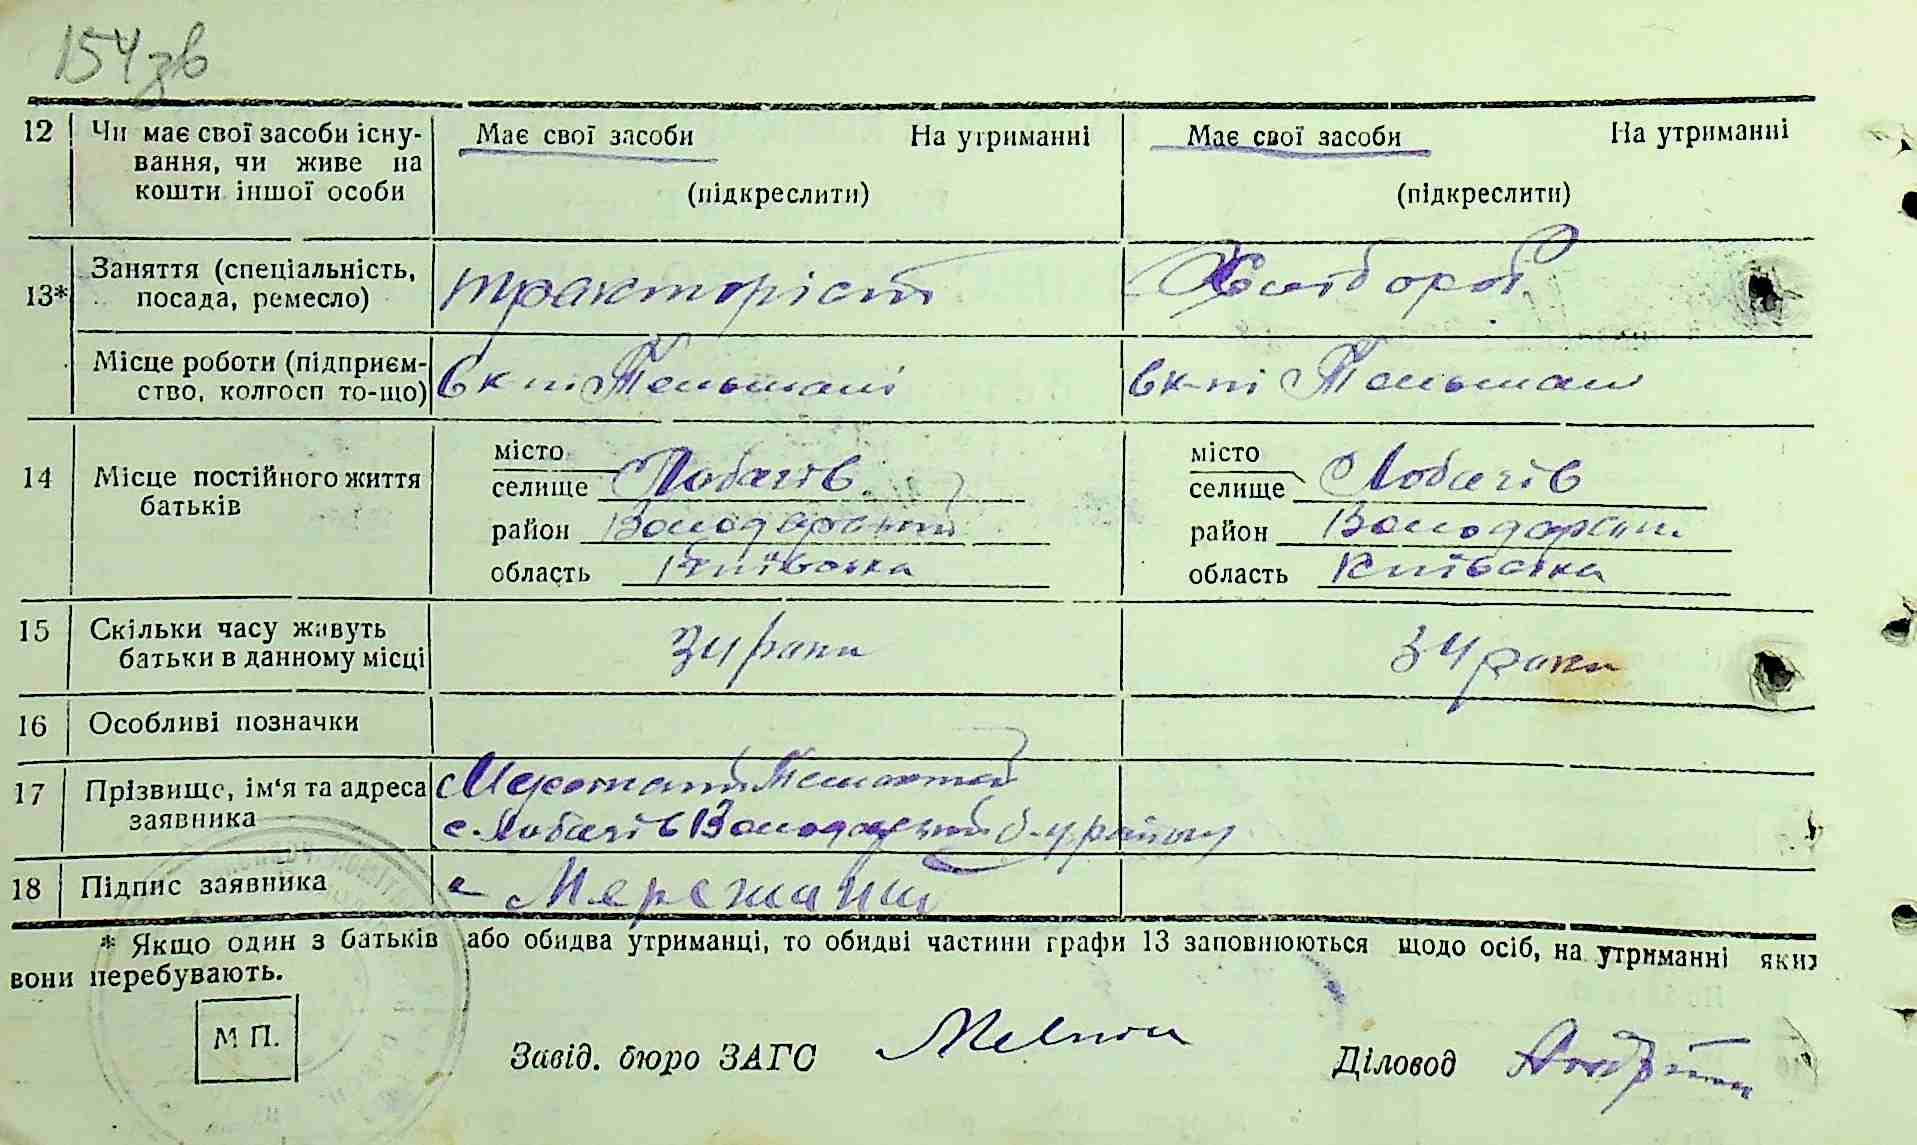 154зв
12 Чи має свої засоби існу- Має свої засоби На утриманні Має свої засоби На утриманні
вання, чи живе на
кошти іншої особи (підкреслити) (підкреслити)
13* Заняття (спеціальність, тракторіст Хлібороб
посада, ремесло)
Місце роботи (підприєм- в к-пі Тельмані в к-пі Тельмані
ство, колгосп то-що)
14 Місце постійного життя місто місто
батьків селище Лобачів селище Лобачів
район Володарський район Володарський
область Київська область Київська
15 Скільки часу живуть 34 роки 34 роки
батьки в данному місці
16 Особливі позначки
17 Прізвище, ім'я та адреса Мережаний
заявника с. Лобачів Володарський району
18 Підпис заявника Мережаний
* Якщо один з батьків або обидва утриманці, то обидві частини графи 13 заповнюються щодо осіб, на утриманні яких
вони перебувають.
М П.
Завід. бюро ЗАГС Діловод